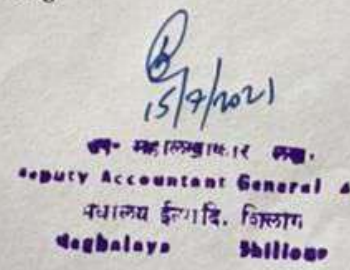 15/9/2021
उप- महालेखाकार लेखा.
Deputy Accountant General A
मेघालय ईत्यादि. शिलांग
Meghalaya Shillong